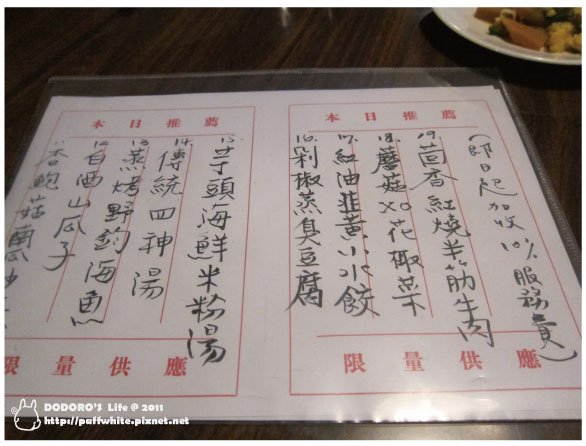 本日推薦
11. 杏鮑菇
12. 白酒山瓜子
13. 蒸烤野釣海魚
14. 傳統四神湯
15. 芋頭海鮮米粉湯
限量供應
本日推薦
16. 剁椒蒸臭豆腐
17. 紅油韭黃小水餃
18. 蘑菇XO花椰菜
19. 茴香紅燒半筋牛肉
(即日起加收10%服務費)
限量供應
DODORO'S Life @ 2011
http://puffwhite.pixnet.net